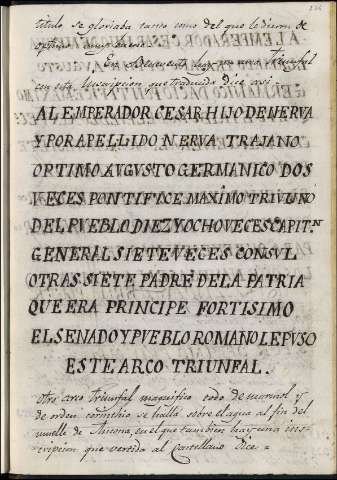 titulo se gloriaba tanto como del que le dieron de
optimo
En Benevento hay un arco Triunfal
con esta inscripcion que traducida dice asi
AL EMPERADOR CESAR HIJO DE NERVA
Y POR APELLIDO NERVA TRAJANO
OPTIMO AVGVSTO GERMANICO DOS
VECES PONTIFICE MAXIMO TRIVUNO
DEL PUEBLO DIEZ Y OCHO VECES CAPIT.N
GENERAL SIETE VECES CONSVL
OTRAS SIETE PADRE DE LA PATRIA
QUE ERA PRINCIPE FORTISIMO
EL SENADO Y PVEBLO ROMANO LE PVSO
ESTE ARCO TRIUNFAL.
Otro arco Triunfal magnifico todo de marmol y
de orden corinthio se halla sobre el agua al fin del
muelle de Ancona, en el que tambien hay una ins-
cripcion que vertida al Castellano Dice =